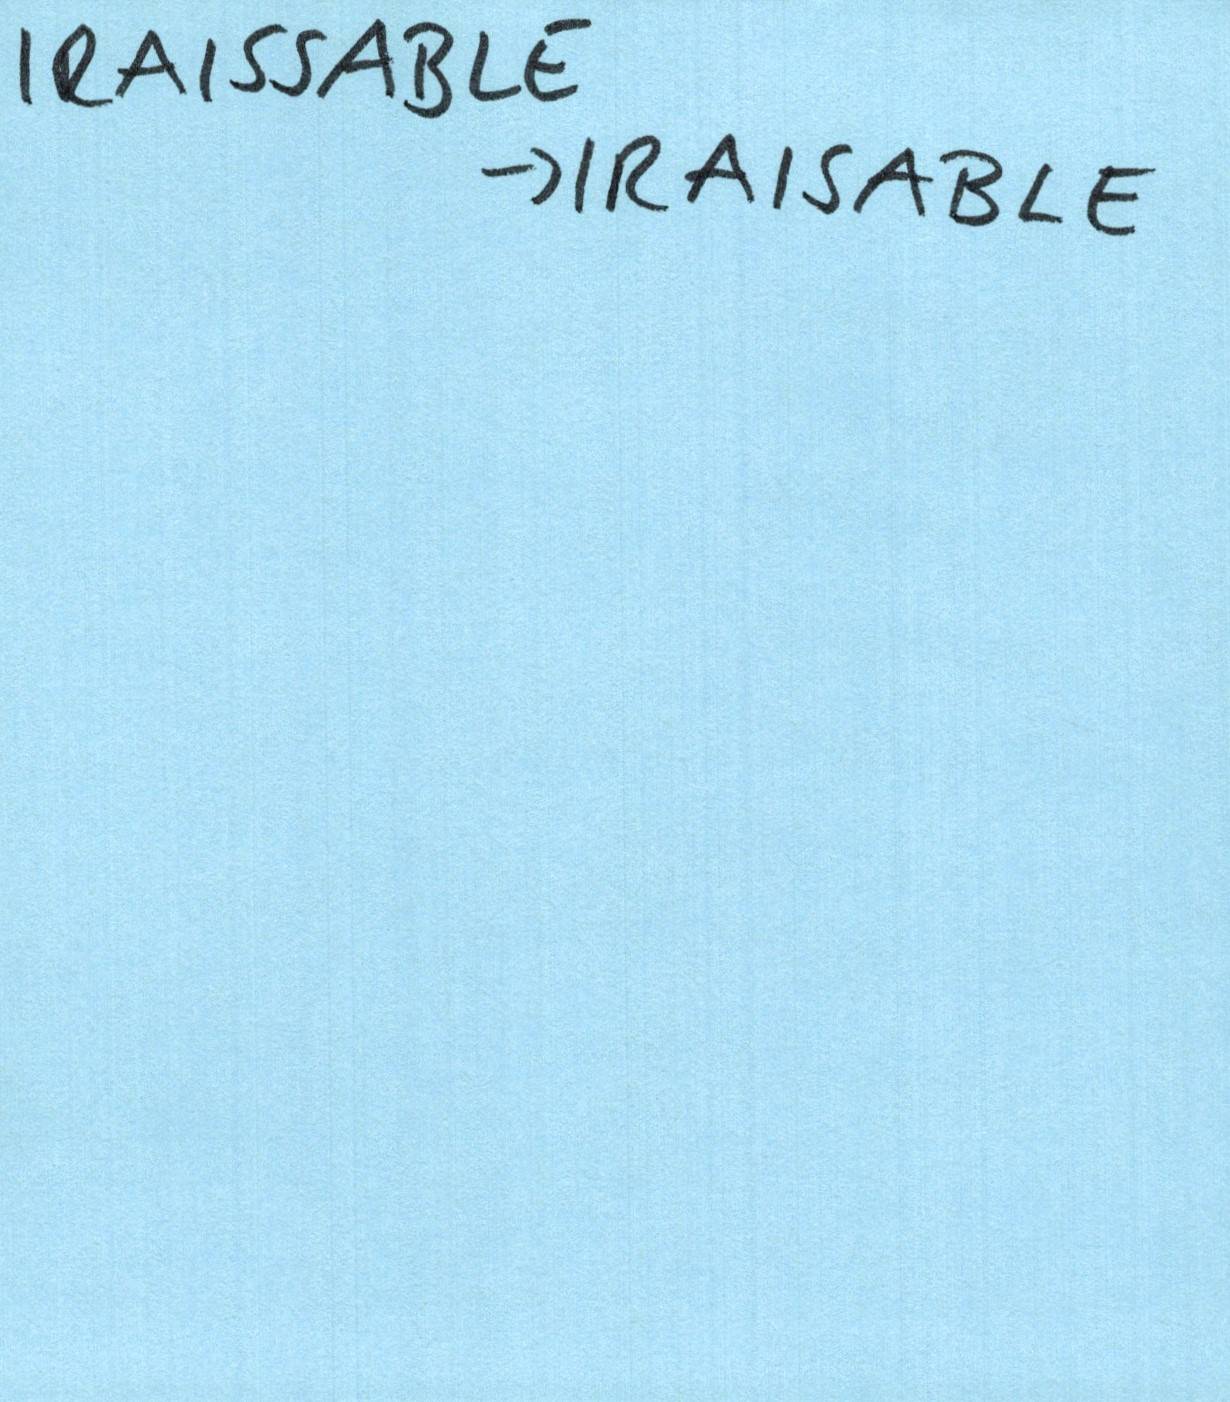 IRAISSABLE
→IRAISABLE